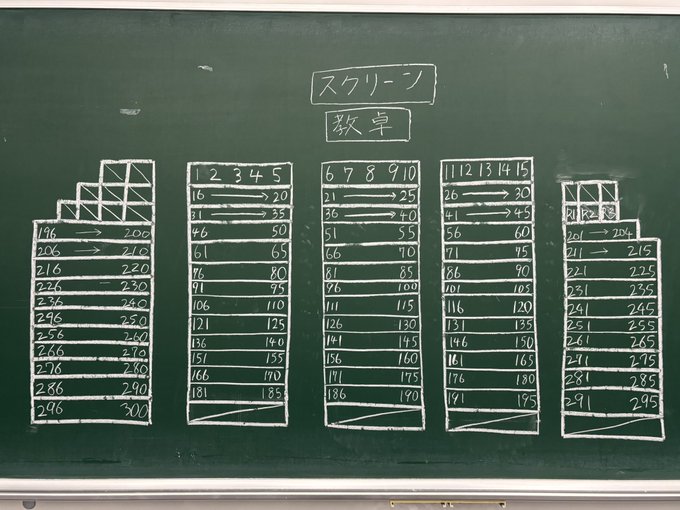 スクリーン
教卓
196 → 200
206 → 210
216 220
226 230
236 240
296 250
256 260
266 270
276 280
286 290
296 300
1 2 3 4 5
16 → 20
31 → 35
46 50
61 65
76 80
91 95
106 110
121 125
136 140
151 155
166 170
181 185
6 7 8 9 10
21 → 25
36 → 40
51 55
66 70
81 85
96 100
111 115
126 130
141 145
156 160
171 175
186 190
11 12 13 14 15
26 → 30
41 → 45
56 60
71 75
86 90
101 105
116 120
131 135
146 150
161 165
176 180
191 195
R1 R2 R3
201 → 204
211 → 215
221 225
231 235
241 245
251 255
261 265
271 275
281 285
291 295